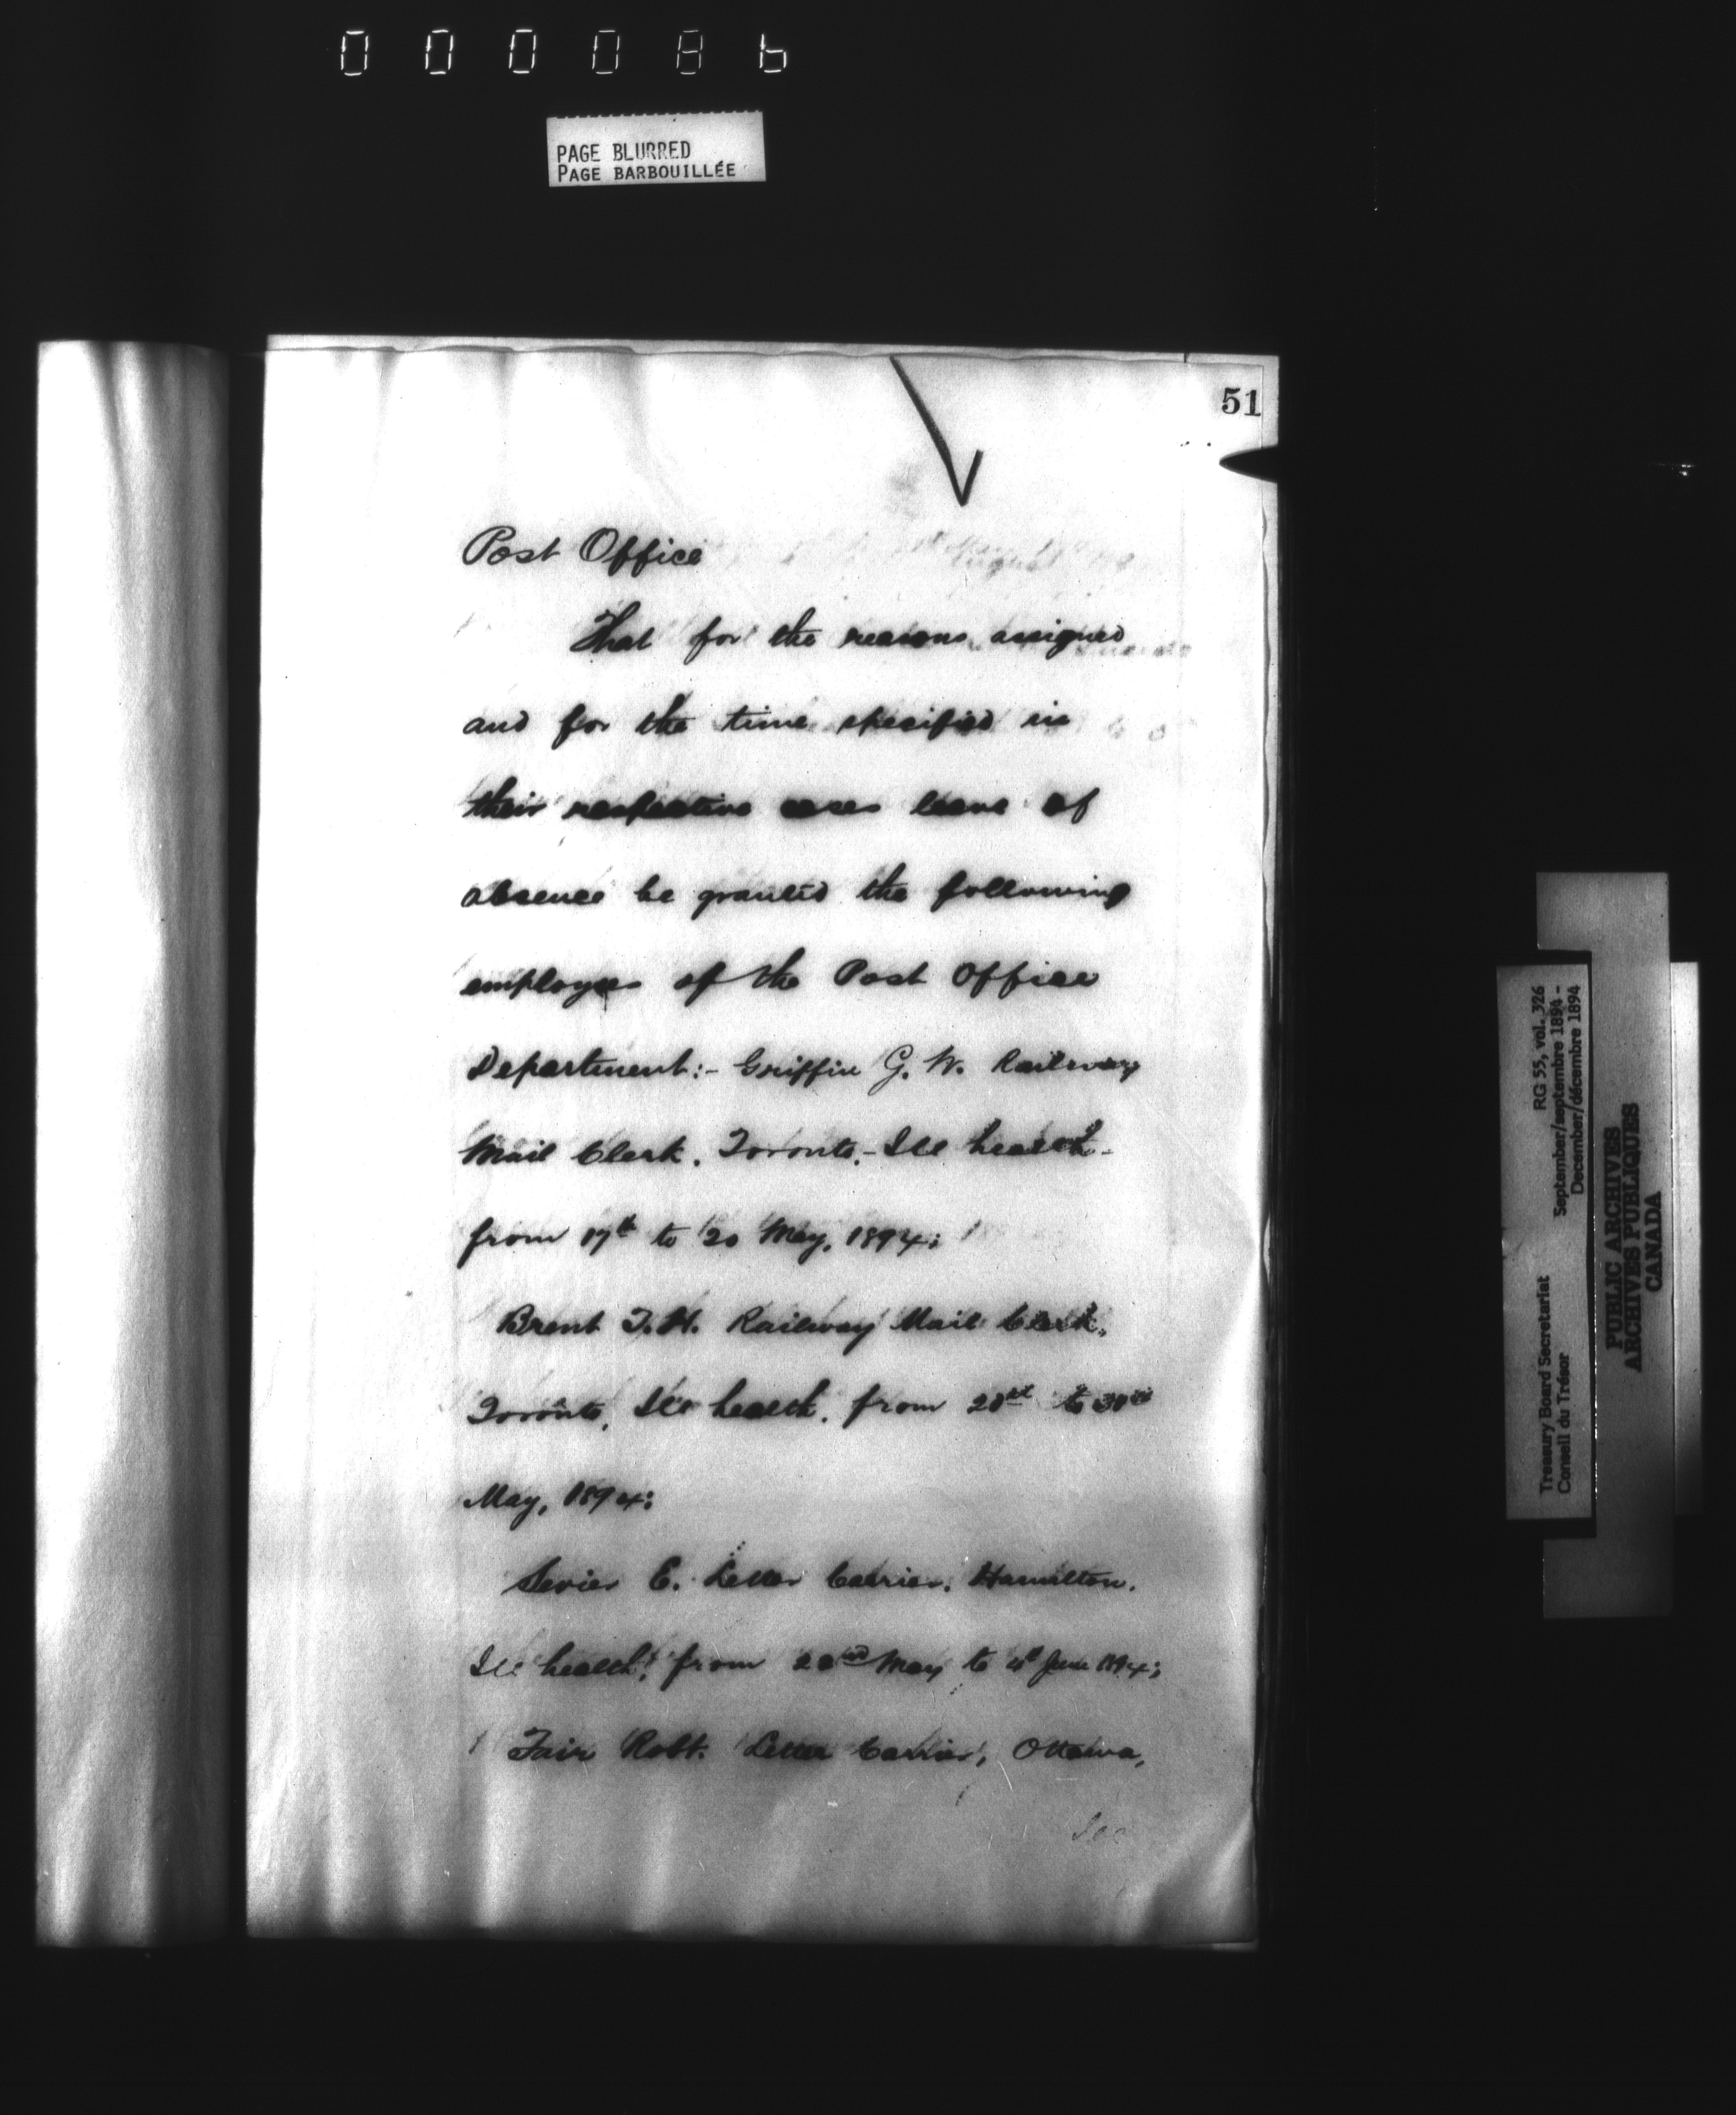 000086
PAGE BLURRED
PAGE BARBOUILLÉE
51
Post Office
That for the reasons assigned
and for the time specified in
their respective cases leave of
absence be granted the following
employees of the Post Office
Department:- Griffin G. W. Railway
Mail Clerk. Toronto,- Ill health-
from 17th to 20 May, 1894;
Brent T. H. Railway Mail Clerk,
Toronto, Ill health, from to 30th
May, 1894;
E. Letter Carrier, Hamilton.
Ill health, from May to June 1894;
Fair Robt. Letter Carrier, Ottawa,
Ill
Treasury Board Secretariat RG 55, vol. 326
Conseil du Trésor September/septembre 1894 -
December/décembre 1894
PUBLIC ARCHIVES
ARCHIVES PUBLIQUES
CANADA